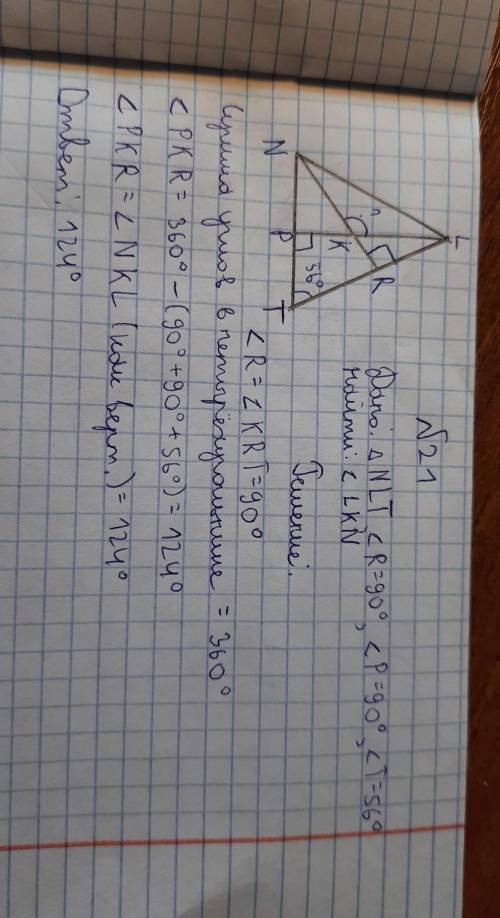 √21
Дано: △ NLT, < R=90°, < P=90°, < T=56°
Найти: < LKN
N
P
T
L
K
R
?
56°
Решение:
< R = < KRT = 90°
Сумма углов в четырёхугольнике = 360°
< PKR = 360° - (90° + 90° + 56°) = 124°
< PKR = < NKL (как верт.) = 124°
Ответ: 124°